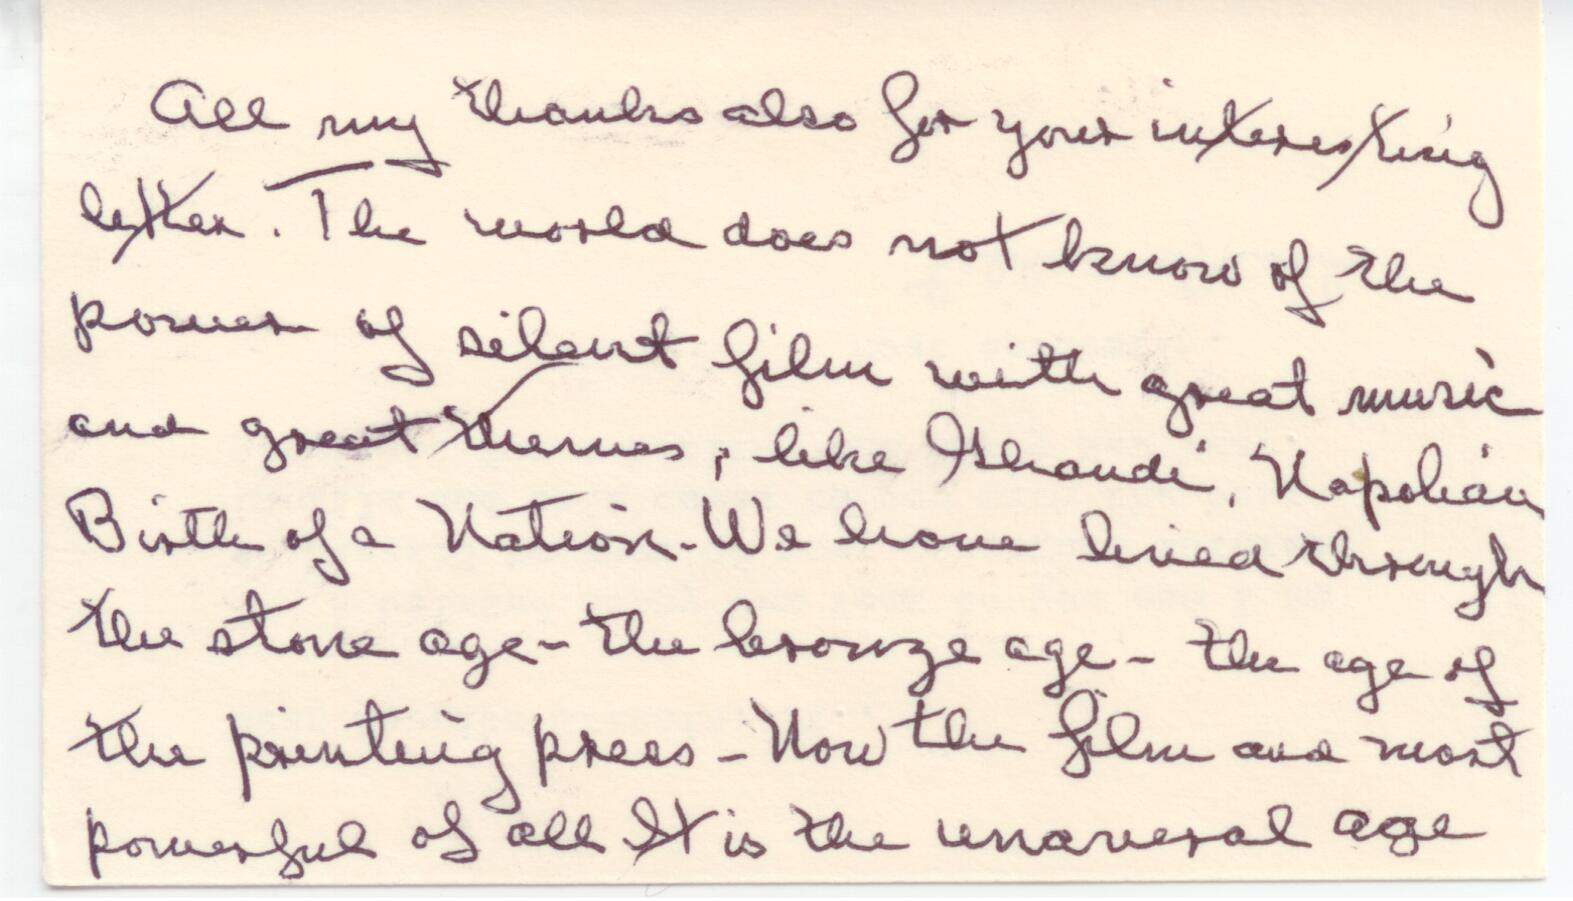 All my thanks also for your interesting
letter. The world does not know of the
power of silent film with great music
and great themes, like Ghandi, Napolian
Birth of a Nation. We have lived through
the stone age - the bronze age - the age of
the printing press - Now the film and most
powerful of all It is the unaversal age